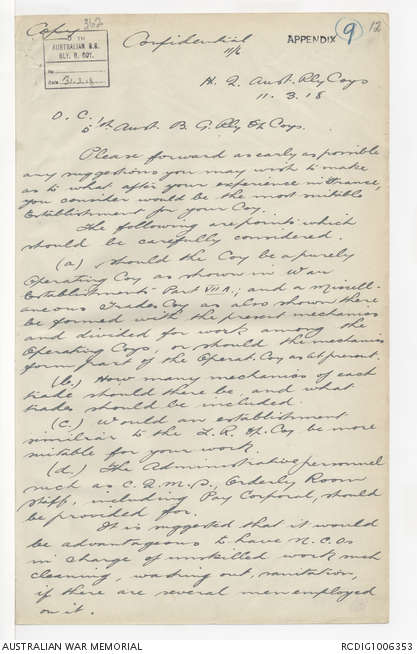 Copy 362
5TH
AUSTRALIAN B.G.
RLY. O. COY.
No.
Date 31.3.18
Confidential
11/6
APPENDIX 9 12
H.Q. Aust. Rly Coys
11.3.18
O.C.
5th Aust. B.G. Rly Op Coys.
Please forward as early as possible
any suggestions you may wish to make
as to what, after your experience in France,
you consider would be the most suitable
Establishment for your Coy.
The following are points which
should be carefully considered.
(a) Should the Coy be a purely
Operating Coy as shown in War
Establishments Part VII A.; and a Miscell-
aneous Trades Coy as also shown there
be formed with the present mechanics
and divided for work among the
Operating Coys, or should the mechanics
form part of the Operat. Coy as at present.
(b.) How many mechanics of each
trade should there be, and what
trades should be included.
(c.) Would an establishment
similiar to the L.R. Op. Coy be more
suitable for your work.
(d.) The Administrative personnel
such as C.Q.M.S., Orderly Room
staff, including Pay Corporal, should
be provided for.
It is suggested that it would
be advantageous to have N.C.Os
in charge of unskilled work, such
cleaning, washing out, sanitation,
if there are several men employed
on it.
AUSTRALIAN WAR MEMORIAL
RCDIG1006353